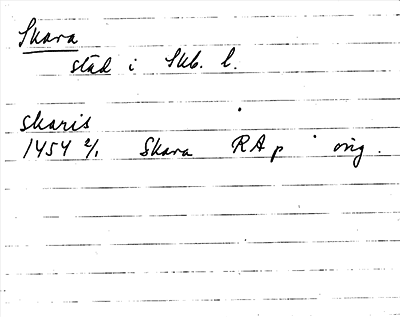 Skara
stad i Skb. l.
Skaris
1454 2/1 Skara RAp orig.